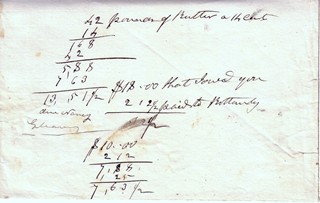 42 pounds of Butter a 14 cent
14
168
42
588
7,63
13,51½ $18.00 that I owed you
2 12½ paid to
½
$10.00
212
7,88
25
7,63½